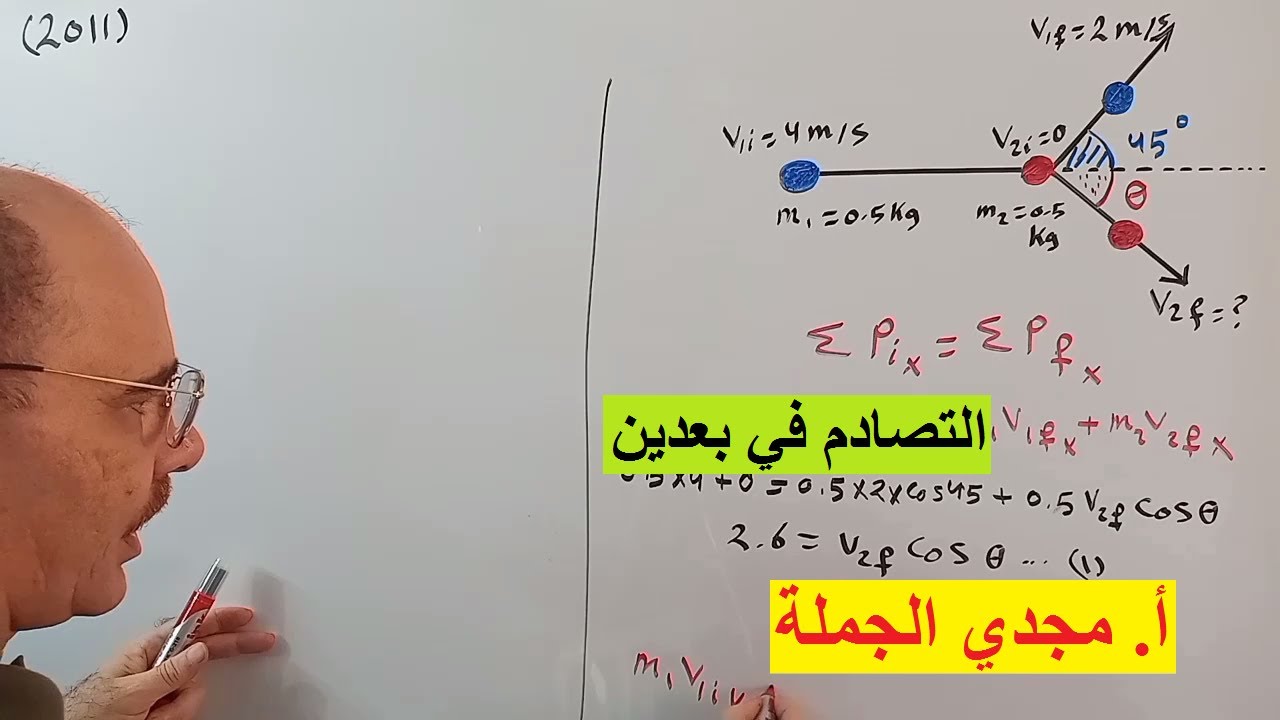 (2011)
V1f = 2 m/s
V1i = 4 m/s
V2i = 0
45°
θ
m1 = 0.5 Kg
m2 = 0.5 Kg
V2f = ?
Σ Pix = Σ Pfx
V1fx + m2 V2fx
التصادم في بعدين
+ 0 = 0.5 × 2 × cos 45 + 0.5 V2f cos θ
2.6 = V2f cos θ ... (1)
أ. مجدي الجملة
m1 V1i